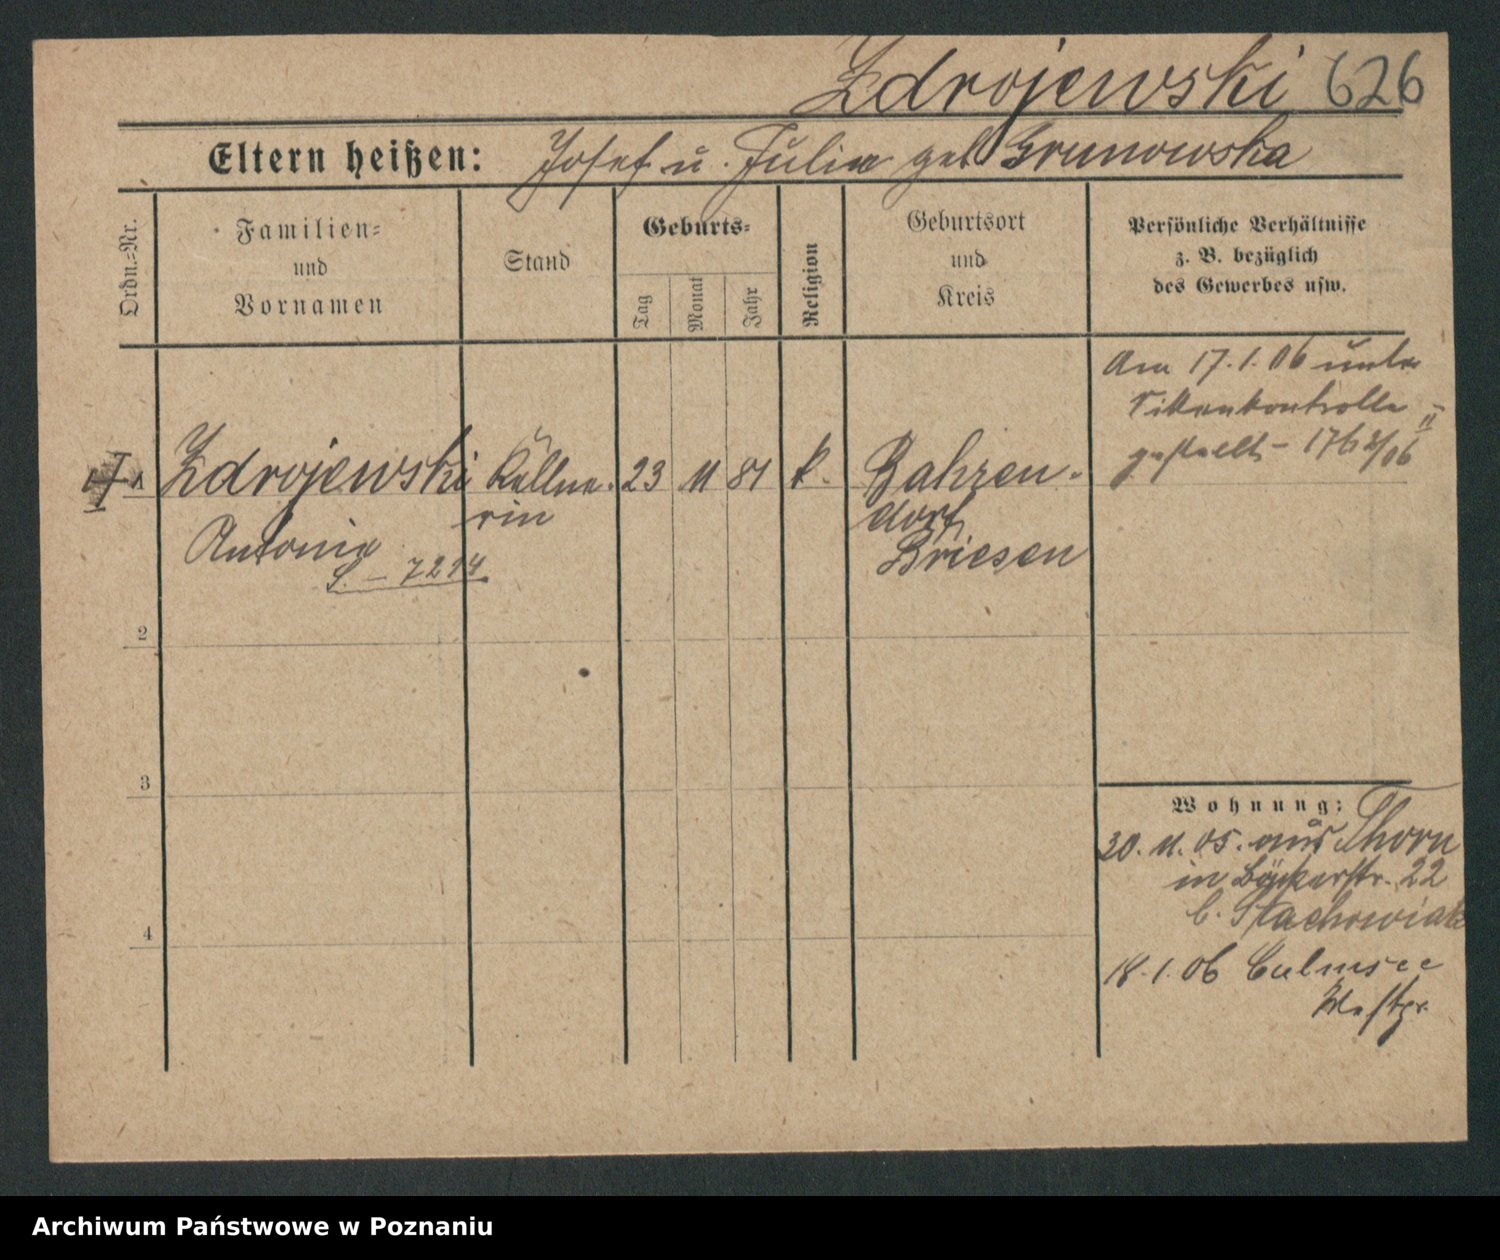 Zdrojewski 626
Eltern heißen: Josef u. Julia geb Grunowska
Ordn.-Nr.
Familien-
und
Vornamen
Stand
Geburts-
Tag
Monat
Jahr
Religion
Geburtsort
und
Kreis
Persönliche Verhältnisse
z. B. bezüglich
des Gewerbes usw.
Am 17.1.06 unter
Sittenkontrolle
gestellt -
1
Zdrojewski
Antonia
S. - 7214
Kellne-
rin
23
11
81
k.
Bahren-
dorf
Briesen
2
3
4
Wohnung:
30.11.05. aus Thorn
in Bäckerstr. 22
b. Stachowiak
18.1.06 Culmsee
Westpr.
Archiwum Państwowe w Poznaniu